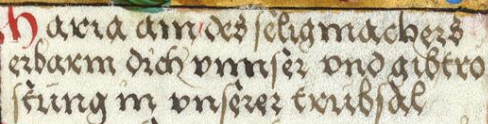 Maria am des seligmachers
erbarm dich vnnser vnd gib tro
stung in vnserer trubsal